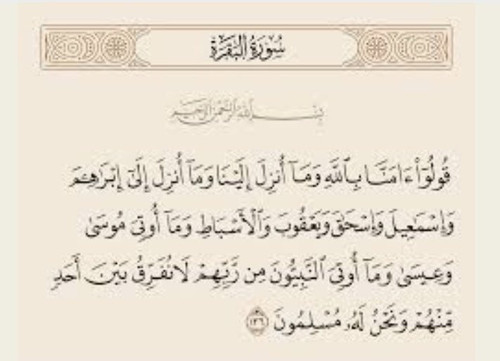 سُورَةُ البَقَرَةِ
بِسْمِ اللَّهِ الرَّحْمَٰنِ الرَّحِيمِ
قُولُوٓا۟ ءَامَنَّا بِٱللَّهِ وَمَآ أُنزِلَ إِلَيْنَا وَمَآ أُنزِلَ إِلَىٰٓ إِبْرَٰهِـۧمَ
وَإِسْمَٰعِيلَ وَإِسْحَٰقَ وَيَعْقُوبَ وَٱلْأَسْبَاطِ وَمَآ أُوتِىَ مُوسَىٰ
وَعِيسَىٰ وَمَآ أُوتِىَ ٱلنَّبِيُّونَ مِن رَّبِّهِمْ لَا نُفَرِّقُ بَيْنَ أَحَدٍ
مِّنْهُمْ وَنَحْنُ لَهُۥ مُسْلِمُونَ ١٣٦